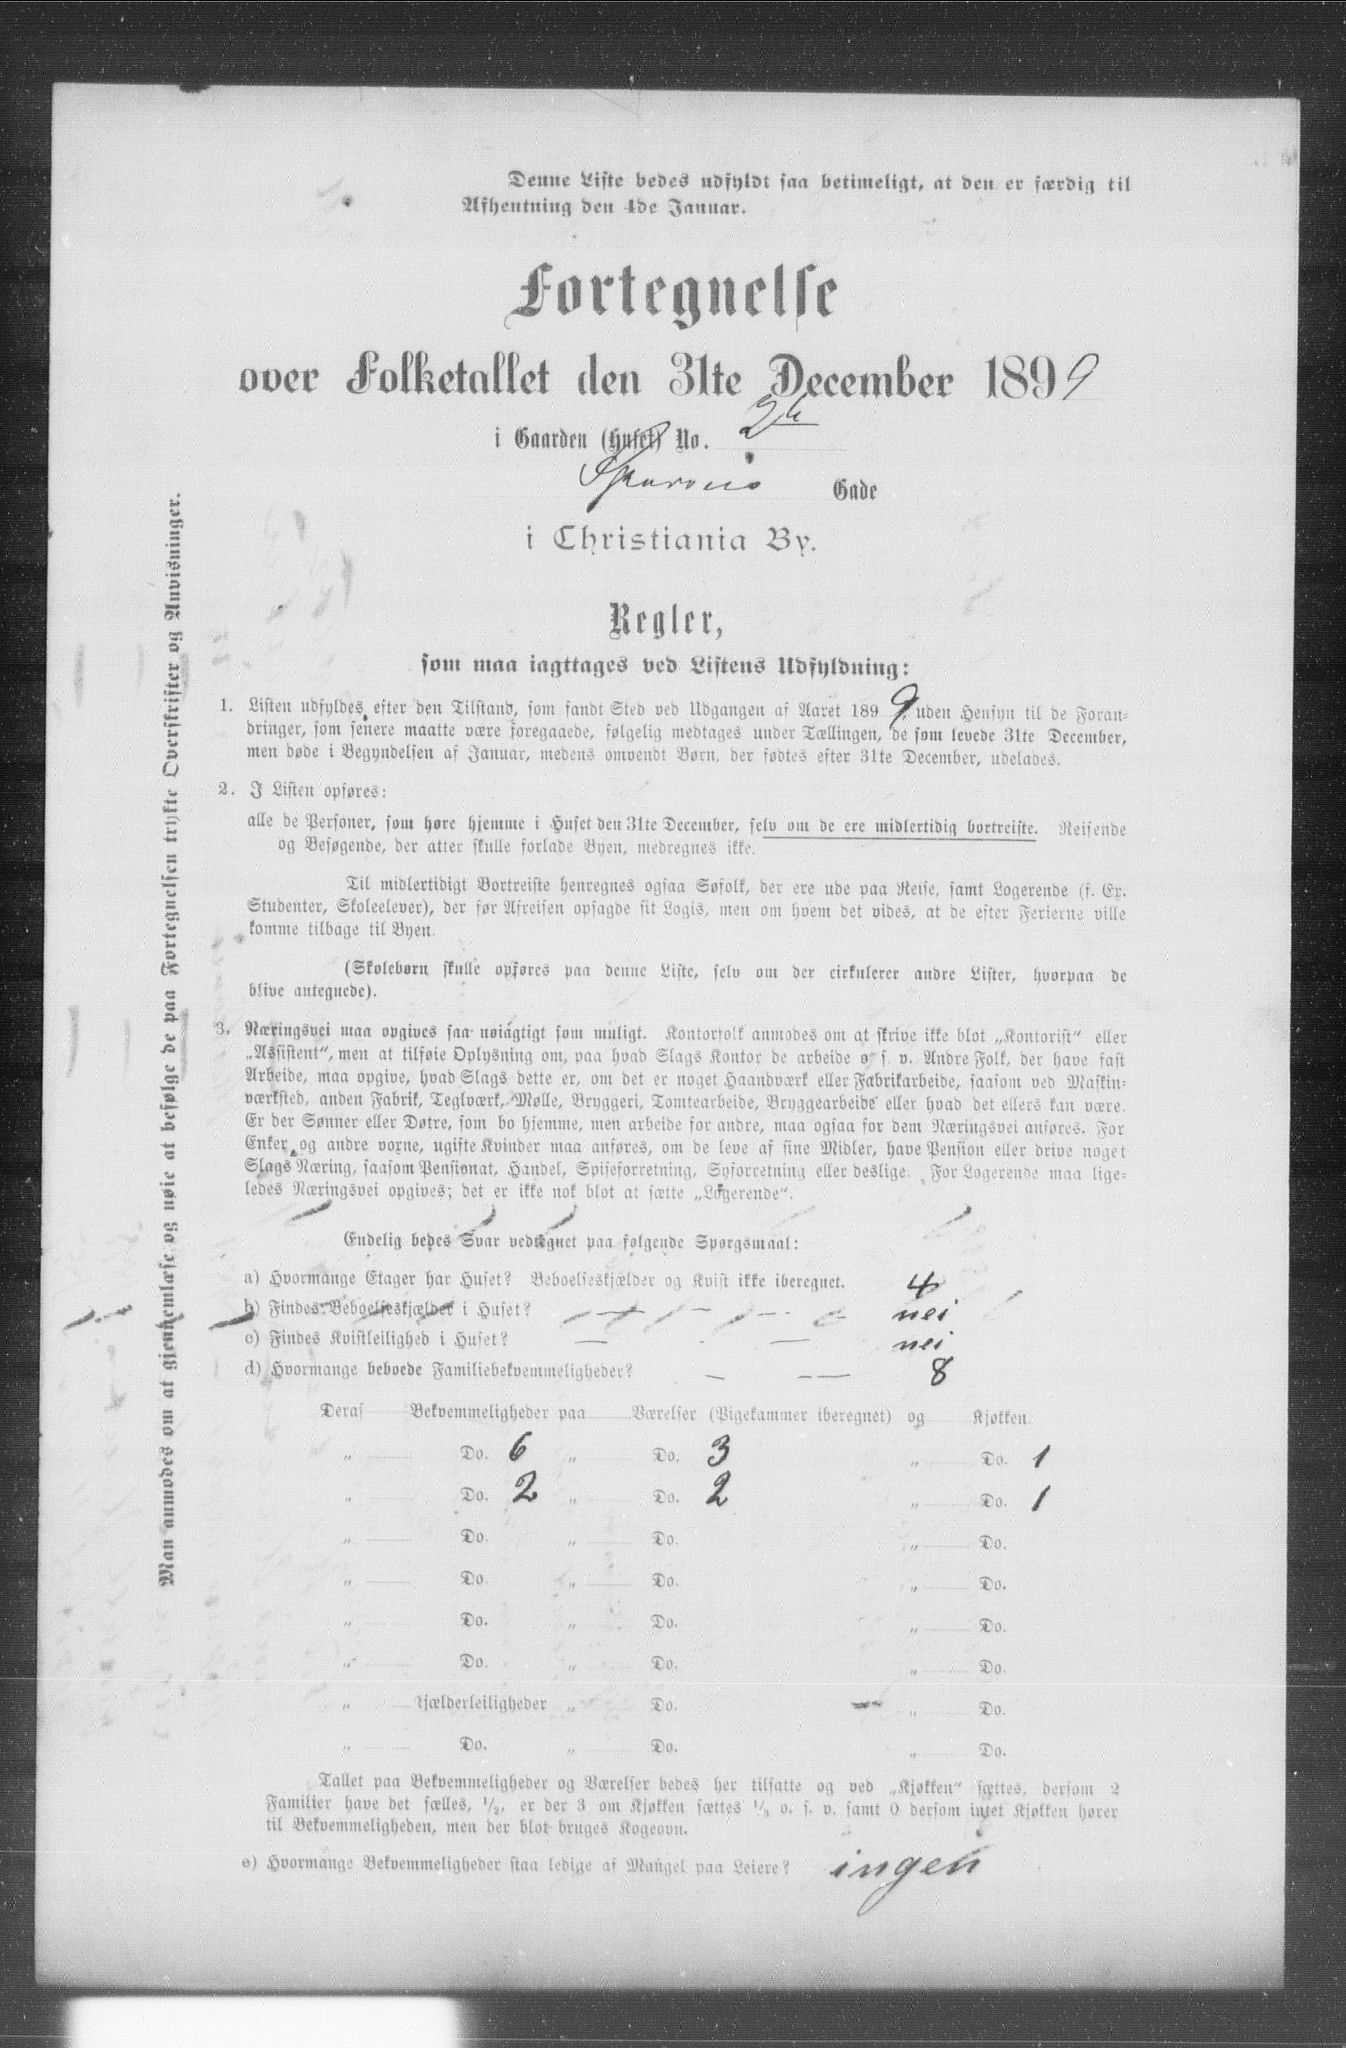 Denne Liste bedes udfyldt saa betimeligt, at den er færdig til
Afhentning den 4de Januar.
Fortegnelse
over Folketallet den 31te December 1899
i Gaarden (Huset) No.
Gade
i Christiania By.
Regler,
som maa iagttages ved Listens Udfyldning:
1. Listen udfyldes efter den Tilstand, som fandt Sted ved Udgangen af Aaret 1899, uden Hensyn til de Foran-
dringer, som senere maatte være foregaaede, følgelig medtages under Tællingen, de som levede 31te December,
men døde i Begyndelsen af Januar, medens omvendt Børn, der fødtes efter 31te December, udelades.
2. I Listen opføres:
alle de Personer, som høre hjemme i Huset den 31te December, selv om de ere midlertidig bortreiste. Reisende
og Besøgende, der atter skulle forlade Byen, medregnes ikke.
Til midlertidigt Bortreiste henregnes ogsaa Søfolk, der ere ude paa Reise, samt Logerende (f. Ex.
Studenter, Skoleelever), der før Afreisen opsagde sit Logis, men om hvem det vides, at de efter Ferierne ville
komme tilbage til Byen.
(Skolebørn skulle opføres paa denne Liste, selv om der cirkulerer andre Lister, hvorpaa de
blive antegnede).
3. Næringsvei maa opgives saa nøiagtigt som muligt. Kontorfolk anmodes om at skrive ikke blot „Kontorist“ eller
„Assistent“, men at tilføie Oplysning om, paa hvad Slags Kontor de arbeide o. s. v. Andre Folk, der have fast
Arbeide, maa opgive, hvad Slags dette er, om det er noget Haandværk eller Fabrikarbeide, saasom ved Maskin-
værksted, anden Fabrik, Teglværk, Mølle, Bryggeri, Tomtearbeide, Bryggearbeide eller hvad det ellers kan være.
Er der Sønner eller Døtre, som bo hjemme, men arbeide for andre, maa ogsaa for dem Næringsvei anføres. For
Enker og andre voxne, ugifte Kvinder maa anføres, om de leve af sine Midler, have Pension eller drive noget
Slags Næring, saasom Pensionat, Handel, Spiseforretning, Syforretning eller deslige. For Logerende maa lige-
ledes Næringsvei opgives; det er ikke nok blot at sætte „Logerende“.
Endelig bedes Svar vedtegnet paa følgende Spørgsmaal:
a) Hvormange Etager har Huset? Beboelseskjælder og Kvist ikke iberegnet. 4
b) Findes Beboelseskjælder i Huset? nei
c) Findes Kvistleilighed i Huset? nei
d) Hvormange beboede Familiebekvemmeligheder? 8
Deraf Bekvemmeligheder paa Værelser (Pigekammer iberegnet) og Kjøkken.
„ Do. 6 „ Do. 3 „ Do. 1
„ Do. 2 „ Do. 2 „ Do. 1
„ Do. „ Do. „ Do.
„ Do. „ Do. „ Do.
„ Do. „ Do. „ Do.
„ Do. „ Do. „ Do.
„ Kjælderleiligheder „ Do. „ Do.
„ Do. „ Do. „ Do.
Tallet paa Bekvemmeligheder og Værelser bedes her tilsatte og ved „Kjøkken“ sættes, dersom 2
Familier have det fælles, 1/2, er der 3 om Kjøkken sættes 1/3 o. s. v. samt 0 dersom intet Kjøkken hører
til Bekvemmeligheden, men der blot bruges Kogeovn.
e) Hvormange Bekvemmeligheder staa ledige af Mangel paa Leiere? ingen
Man anmodes om at gjennemlæse og nøie at befølge de paa Fortegnelsen trykte Overskrifter og Anvisninger.